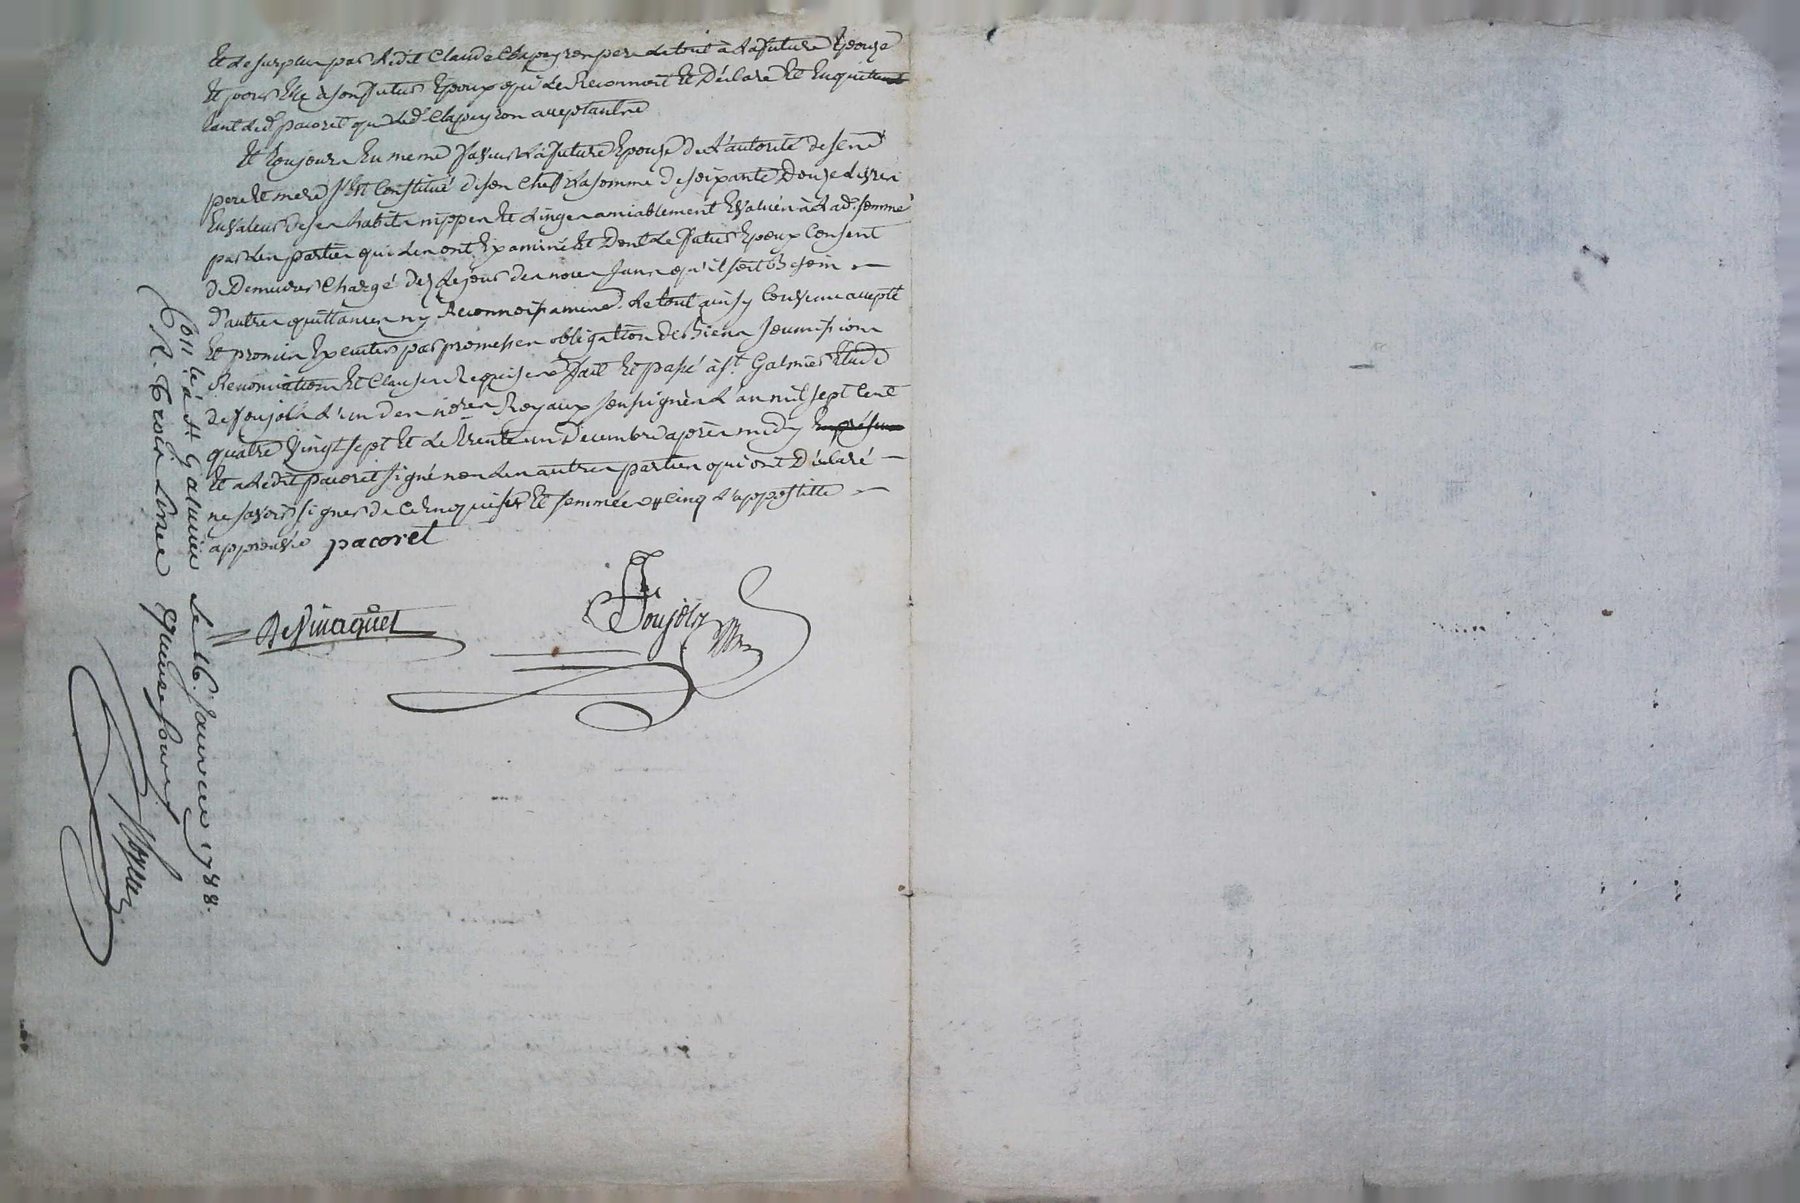 Et le surplus par ledit Claude Clapeyron pere le tout à la future Epouze
Et pour Elle à son futur Epoux qui le Reconnoit Et Déclare Et Enquitte
tant led. pacoret que led. Clapeyron acceptant
Et toujours En meme faveur la future Epouze de l'autorité de ses
pere Et mere s'est Constitué de son Chef la somme de soixante Douze livres
En valeur de ses habits nippes Et linges amiablement Evalués à lad. somme
par les parties qui les ont Examiné Et Dont le futur Epoux Consent
de Demeurer Chargé dez le jour des noces sans qu'il soit Besoin
d'autres quittances ny Reconnoissances. Le tout ainsy Convenu accepté
Et promis Executer par promesses obligation de Biens soumissions
Renonciations Et Clauses Requises fait Et passé à st. Galmier Etude
de Soujols l'un des nores Royaux soussignés l'an mil sept cent
quatre vingt sept Et le trente un Decembre après midy
Et a ledit pacoret signé non les autres parties qui ont Déclaré
ne savoir signer de ce Enquises Et sommées Cinq d'appostille
approuvée pacoret
Soujols
Con. lé à st Galmier le 16. Janvier 1788.
R. trois livres quinze sous